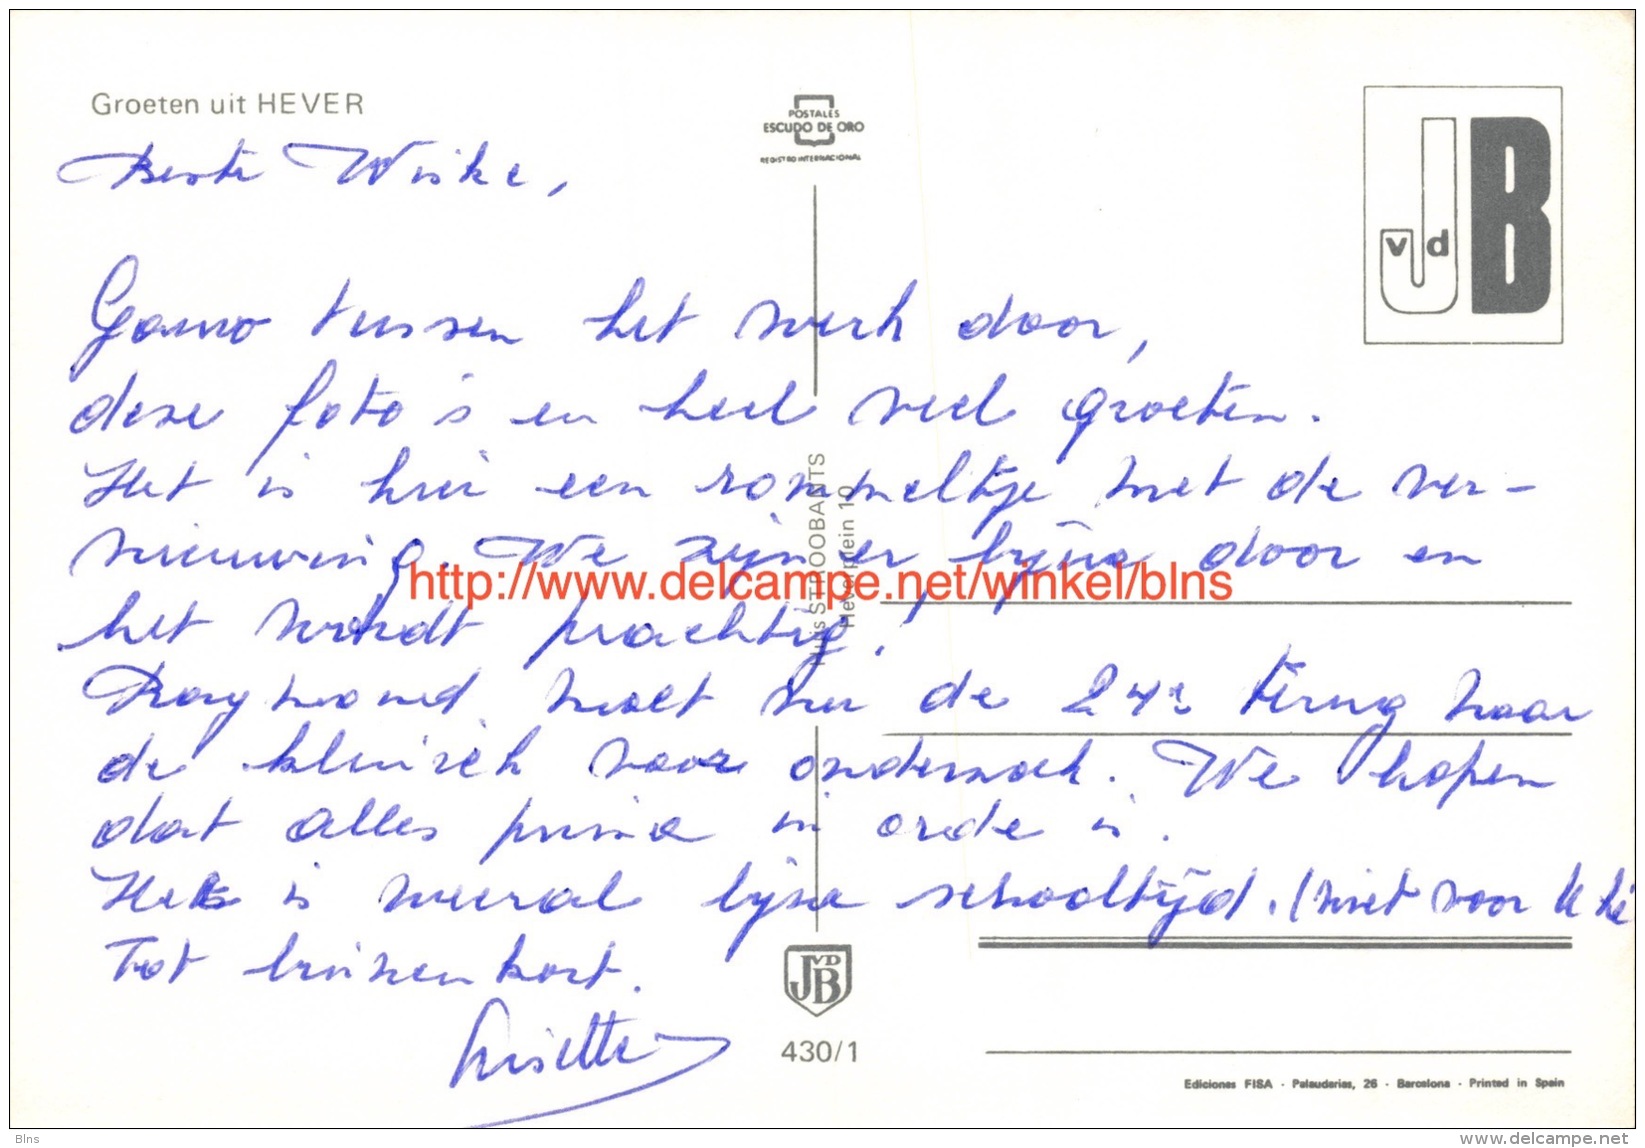 Groeten uit HEVER
POSTALES
ESCUDO DE ORO
REGISTRO INTERNACIONAL
J vd B
Beste Wiske,
Gauw tussen het werk door,
deze foto's en heel veel groeten.
Het is hier een rommeltje met de ver-
nieuwing. We zijn er bijna door en
het wordt prachtig!
Raymond moet nu de 24e terug naar
de kliniek voor onderzoek. We hopen
dat alles prima in orde is.
Het is weeral bijna schooltijd. (niet voor U hé
Tot binnenkort.
Lisette
STROOBANTS
Heverplein 10
http://www.delcampe.net/winkel/blns
JVDB
430/1
Ediciones FISA - Palaudarias, 26 - Barcelona - Printed in Spain
Blns
www.delcampe.net